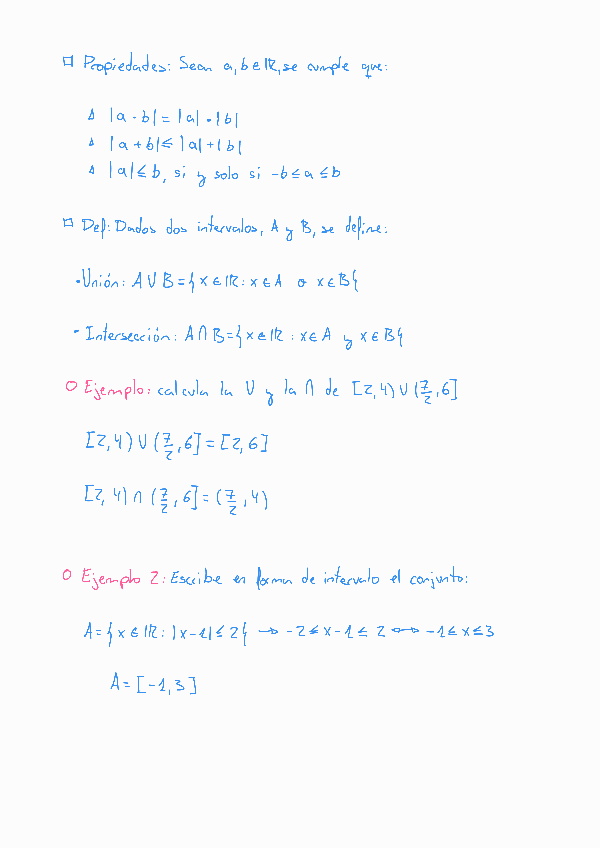 □ Propiedades: Sean a, b ∈ ℝ, se cumple que:
△ |a · b| = |a| · |b|
△ |a + b| ≤ |a| + |b|
△ |a| ≤ b, si y solo si -b ≤ a ≤ b
□ Def: Dados dos intervalos, A y B, se define:
· Unión: A ∪ B = { x ∈ ℝ : x ∈ A o x ∈ B }
· Intersección: A ∩ B = { x ∈ ℝ : x ∈ A y x ∈ B }
○ Ejemplo: calcula la ∪ y la ∩ de [2, 4) ∪ (7/2, 6]
[2, 4) ∪ (7/2, 6] = [2, 6]
[2, 4) ∩ (7/2, 6] = (7/2, 4)
○ Ejemplo 2: Escribe en forma de intervalo el conjunto:
A = { x ∈ ℝ : |x - 1| ≤ 2 } → -2 ≤ x - 1 ≤ 2 ↔ -1 ≤ x ≤ 3
A = [-1, 3]